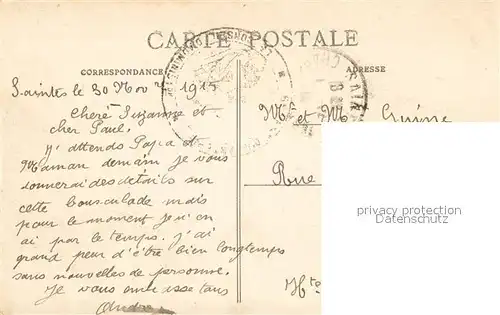 CARTE POSTALE
CORRESPONDANCE
ADRESSE
Saintes le 30 Nov 1915
Chere Suzanne et
cher Paul.
J'attends Papa et
Maman demain je vous
donnerai des details sur
cette bousculade mais
pour le moment je n'en
ai pas le temps. j'ai
grand peur d'être bien longtemps
sans nouvelles de personne.
Je vous embrasse tous
André
Mr et Mme
Rue
Hte
privacy protection
Datenschutz